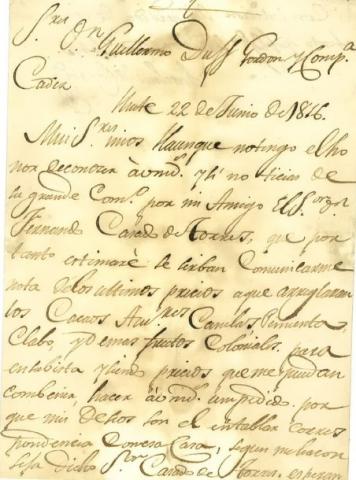 S.res D.n Guillermo Duff Gordon y Comp.a
Cadiz
22 de Junio de 1816.
Mui S.res mios Haunque no tingo el ho
nor de conocer à vmd.s y hi no ticias de
su grande Com.o por mi Amigo El S.or D.n
Fernando Casado de Torres, que por
tanto estimarè se sirban Comunicarme
nota de los ultimos pricios a que arreglaran
los Cacaos Azu.res Canelas Pimienta
Clabo, y demas frutos Coloniales para
en su bista y siendo pricios que me puedan
combenir hacer à vmd.s un pedido por
que mis deseos son el entablar corres
pondencia con esa Casa, segun me hacon
seja dicho S.or Casado de Torres, esperan